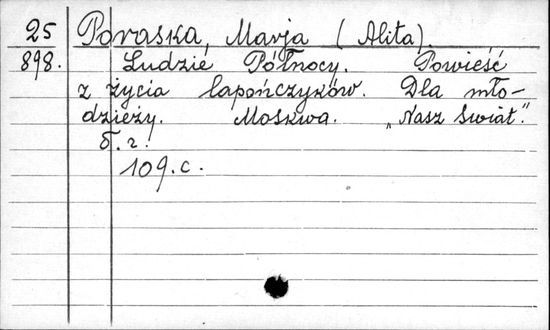 25 Poraska, Marja (Alita).
898. Ludzie Północy. Powieść
z życia lapończyków. Dla mło-
dzieży. Moskwa. „Nasz Świat".
б. г.
109. с.